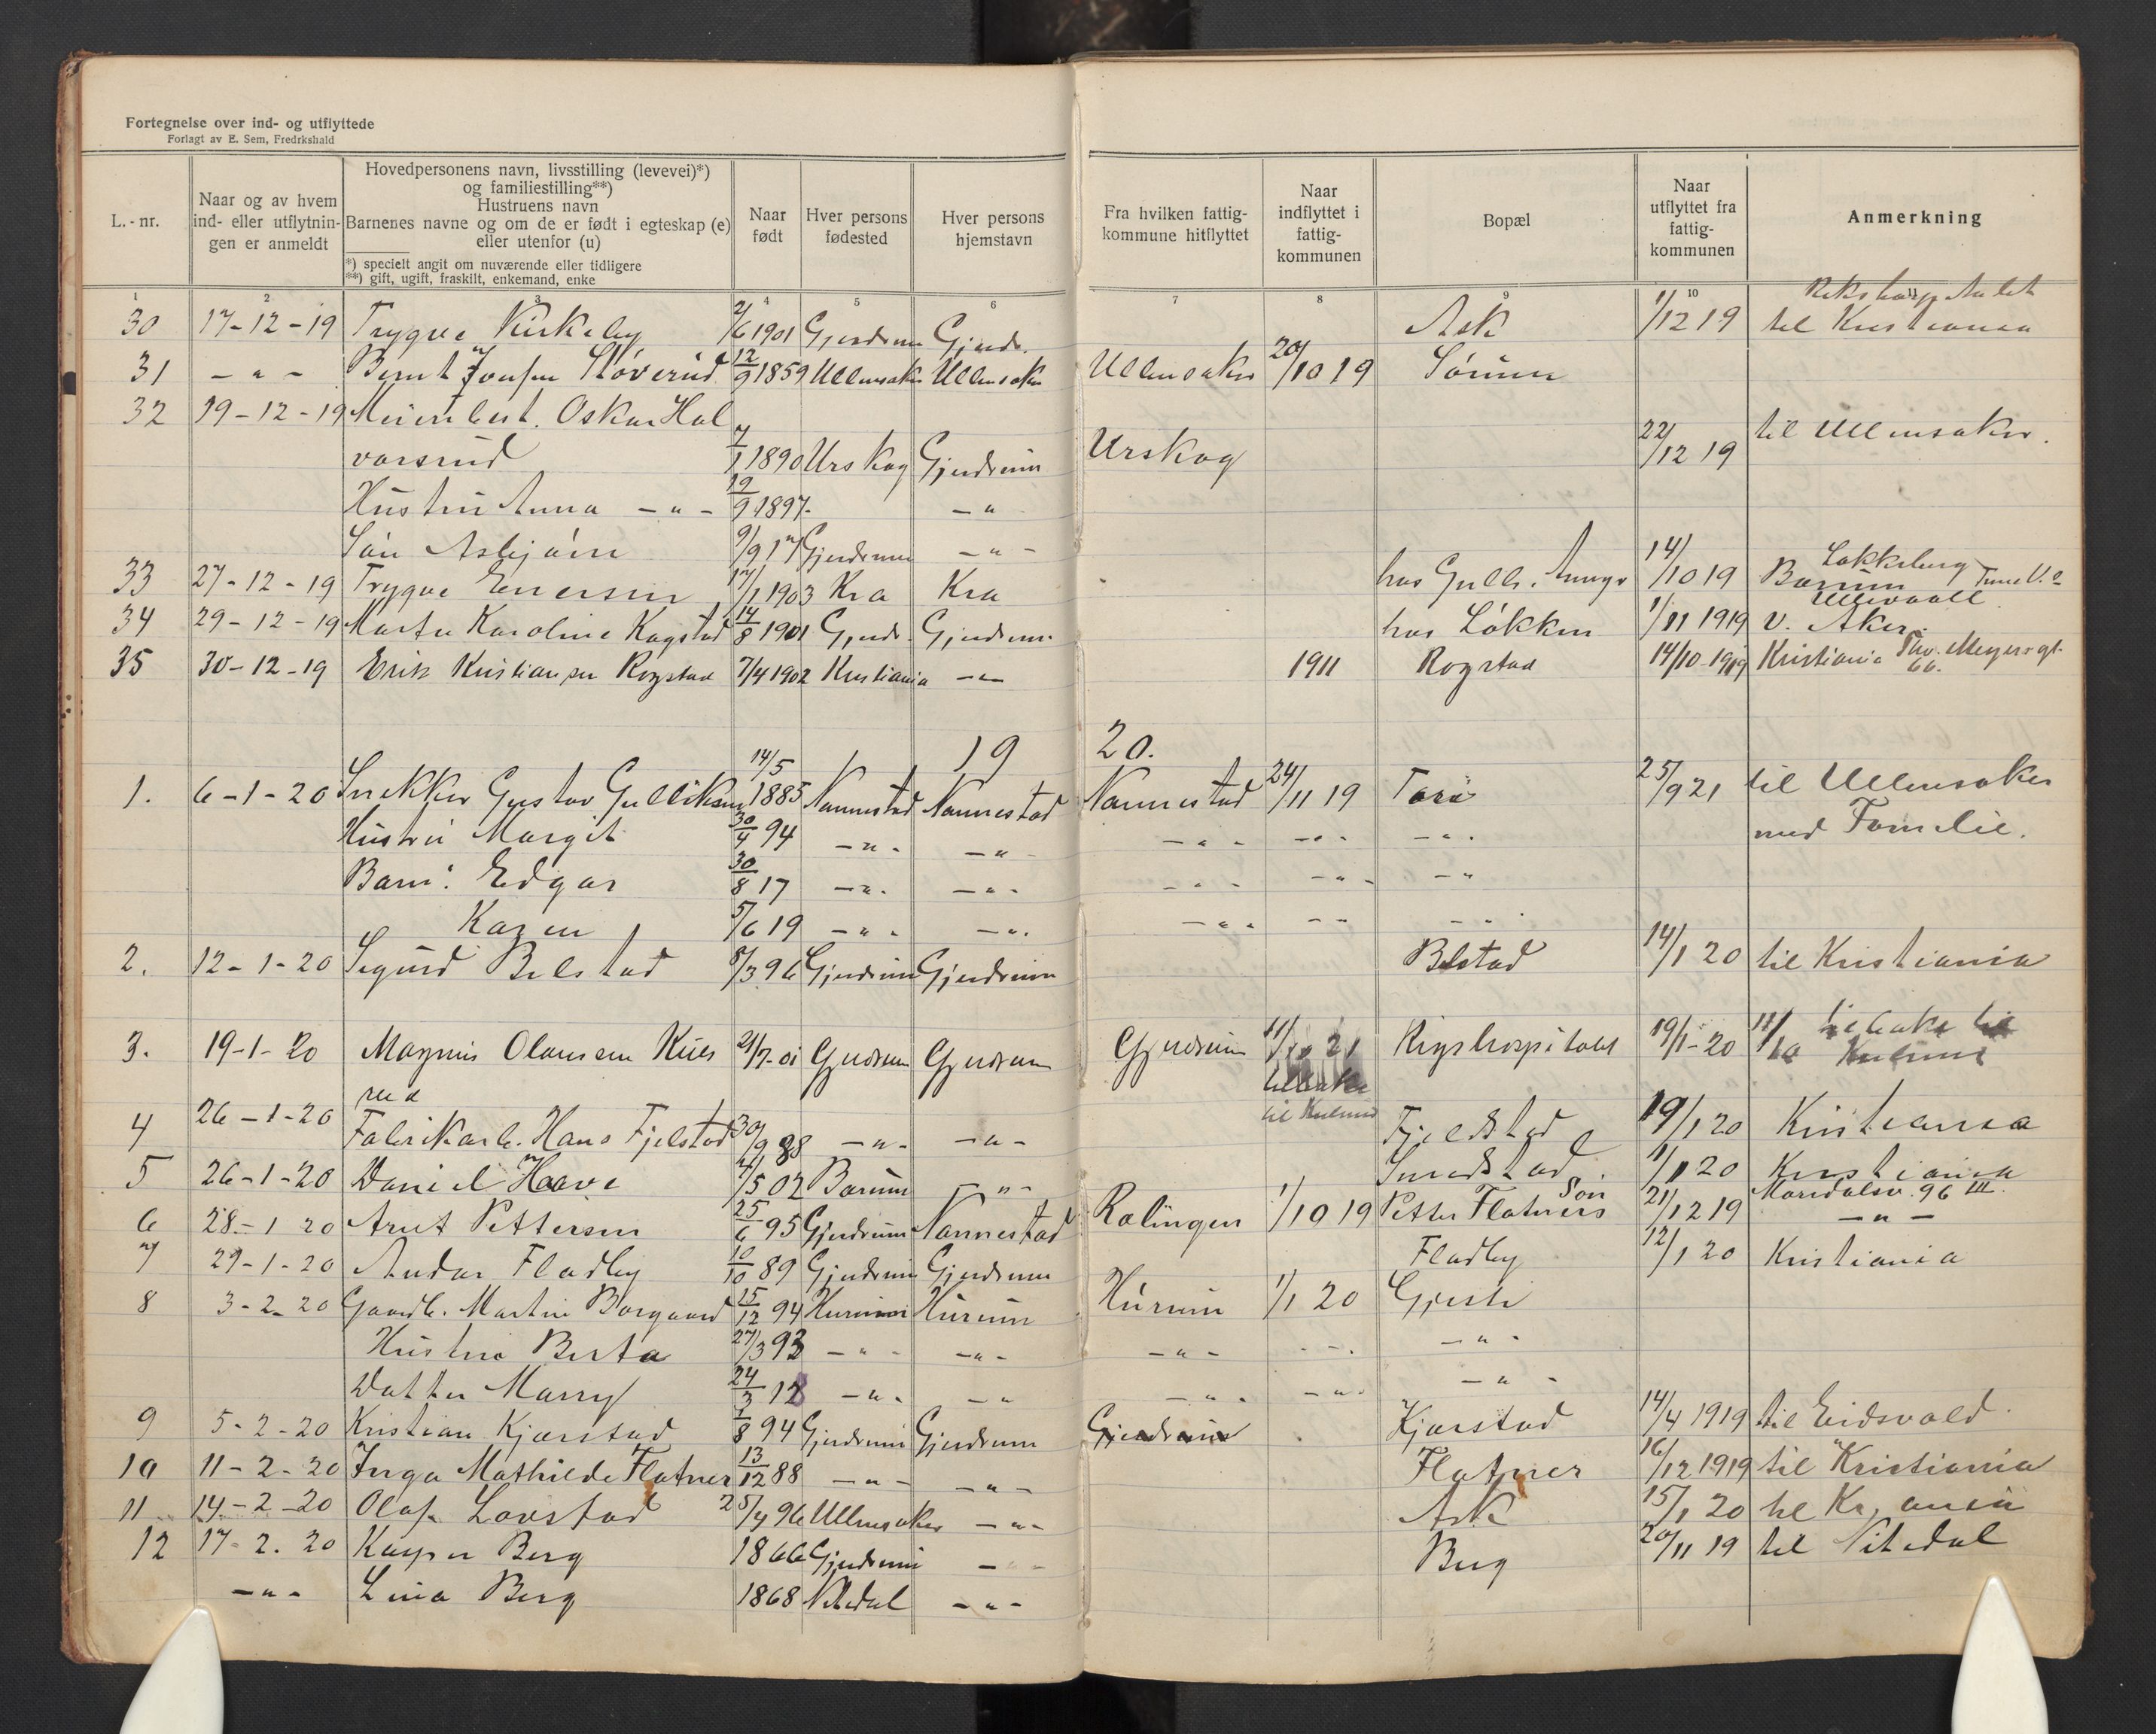 Fortegnelse over ind- og utflyttede
Forlagt av E. Sem, Fredrkshald
L.-nr.
Naar og av hvem ind- eller utflytnin-gen er anmeldt
Hovedpersonens navn, livsstilling (levevei)*)
og familiestilling**)
Hustruens navn
Barnenes navne og om de er født i egteskap (e)
eller utenfor (u)
*) specielt angit om nuværende eller tidligere
**) gift, ugift, fraskilt, enkemand, enke
Naar født
Hver persons fødested
Hver persons hjemstavn
Fra hvilken fattig-kommune hitflyttet
Naar indflyttet i fattig-kommunen
Bopæl
Naar utflyttet fra fattig-kommunen
Anmerkning
1 2 3 4 5 6 7 8 9 10 11
30 17-12-19 Trygve Kirkeby 2/6 1901 Gjerdrum Gjerdr. Ask 1/12 19 til Kristiania
31 - " - Bernt Jonsen Støverud 12/9 1859 Ullensaker Ullensaker Ullensaker 20/10 19 Sörum
32 19-12-19 Oskar Hal
vorsrud 7/1 1890 Urskog Gjerdrum Urskog 22/12 19 til Ullensaker.
Hustru Anna - " - 19/9 1897 - "
Sön Asbjörn 9/9 17 Gjerdrum - " -
33 27-12-19 Trygve Enersen 17/1 1903 Kra Kra hos Gulbr. 14/10 19 Bærum
34 29-12-19 Marta Karoline Kogstad 14/8 1901 Gjerdr. Gjerdrum hos Løkken 1/11 1919 Ullevaall V. Aker.
35 30-12-19 Erik Kristiansen Rogstad 7/4 1902 Kristiania - " - 1911 Rogstad 14/10-1919 Kristiania Thv. Meyersgt. 66.
1920.
1. 6-1-20 Snekker Gustav Gulliksen 14/5 1885 Nannestad Nannestad Nannestad 24/11 19 25/9 21 til Ullensaker
Hustru Margit 30/4 94 - " - - " - " - - " - - " - med Familie.
Barn: Edgar 30/8 17 - " - - " - - " - - " - - "
Karen 5/6 19 - " - - " - - " - - " - - " -
2. 12-1-20 Sigurd Belstad 5/3 96 Gjerdrum Gjerdrum Belstad 14/1 20 til Kristiania
3. 19-1-20 Magnus Olausen Kuls 21/7-01 Gjerdrum Gjerdrum Gjerdrum 21 Rigshospitalet 19/1-20
rud tilbake
4 26-1-20 Fabrikarb. Hans Fjelstad 30/9 88 - " - - " - Fjeldstad 19/1 20 Kristiania
5 26-1-20 Daniel Have 5 02 Bærum - " - Smedstad 1/1 20 Kristiania
6 28-1 20 Arnt Pettersen 25/6 95 Gjerdrum Nannestad Rælingen 1/10 19 Petter Flatners Sön 21/12 19 Maridalsv. 96 III. - " -
7 29-1-20 Andar Fladby 10/10 89 Gjerdrum Gjerdrum Fladby 12/1 20 Kristiania
8 3-2-20 Gaardb. Martin Borgaard 15/12 94 Hurum Hurum Hurum 1/1 20 Gjesti
Hustru Berta 27/3 93 - " - - " - - " - - " - - " -
Datter Marry 24/3 18 - " - - " - " - - " - - " -
9 5-2-20 Kristian Kjærstad 1/8 94 Gjerdrum Gjerdrum Gjerdrum Kjærstad 14/4 1919 til Eidsvold.
10 11-2-20 Inga Mathilde Flatner 13/12 88 - " - - " - Flatner 16/12 1919 til Kristiania
11 14-2-20 Olaf Lovstad 25/4 96 Ullensaker - " - Ask 15/1 20 til Kr.ania
12 17-2.20 Kasper Berg 1866 Gjerdrum - " - Berg 20/11 19 til Nitedal
- " - Lina Berg 1868 Nitedal - " -